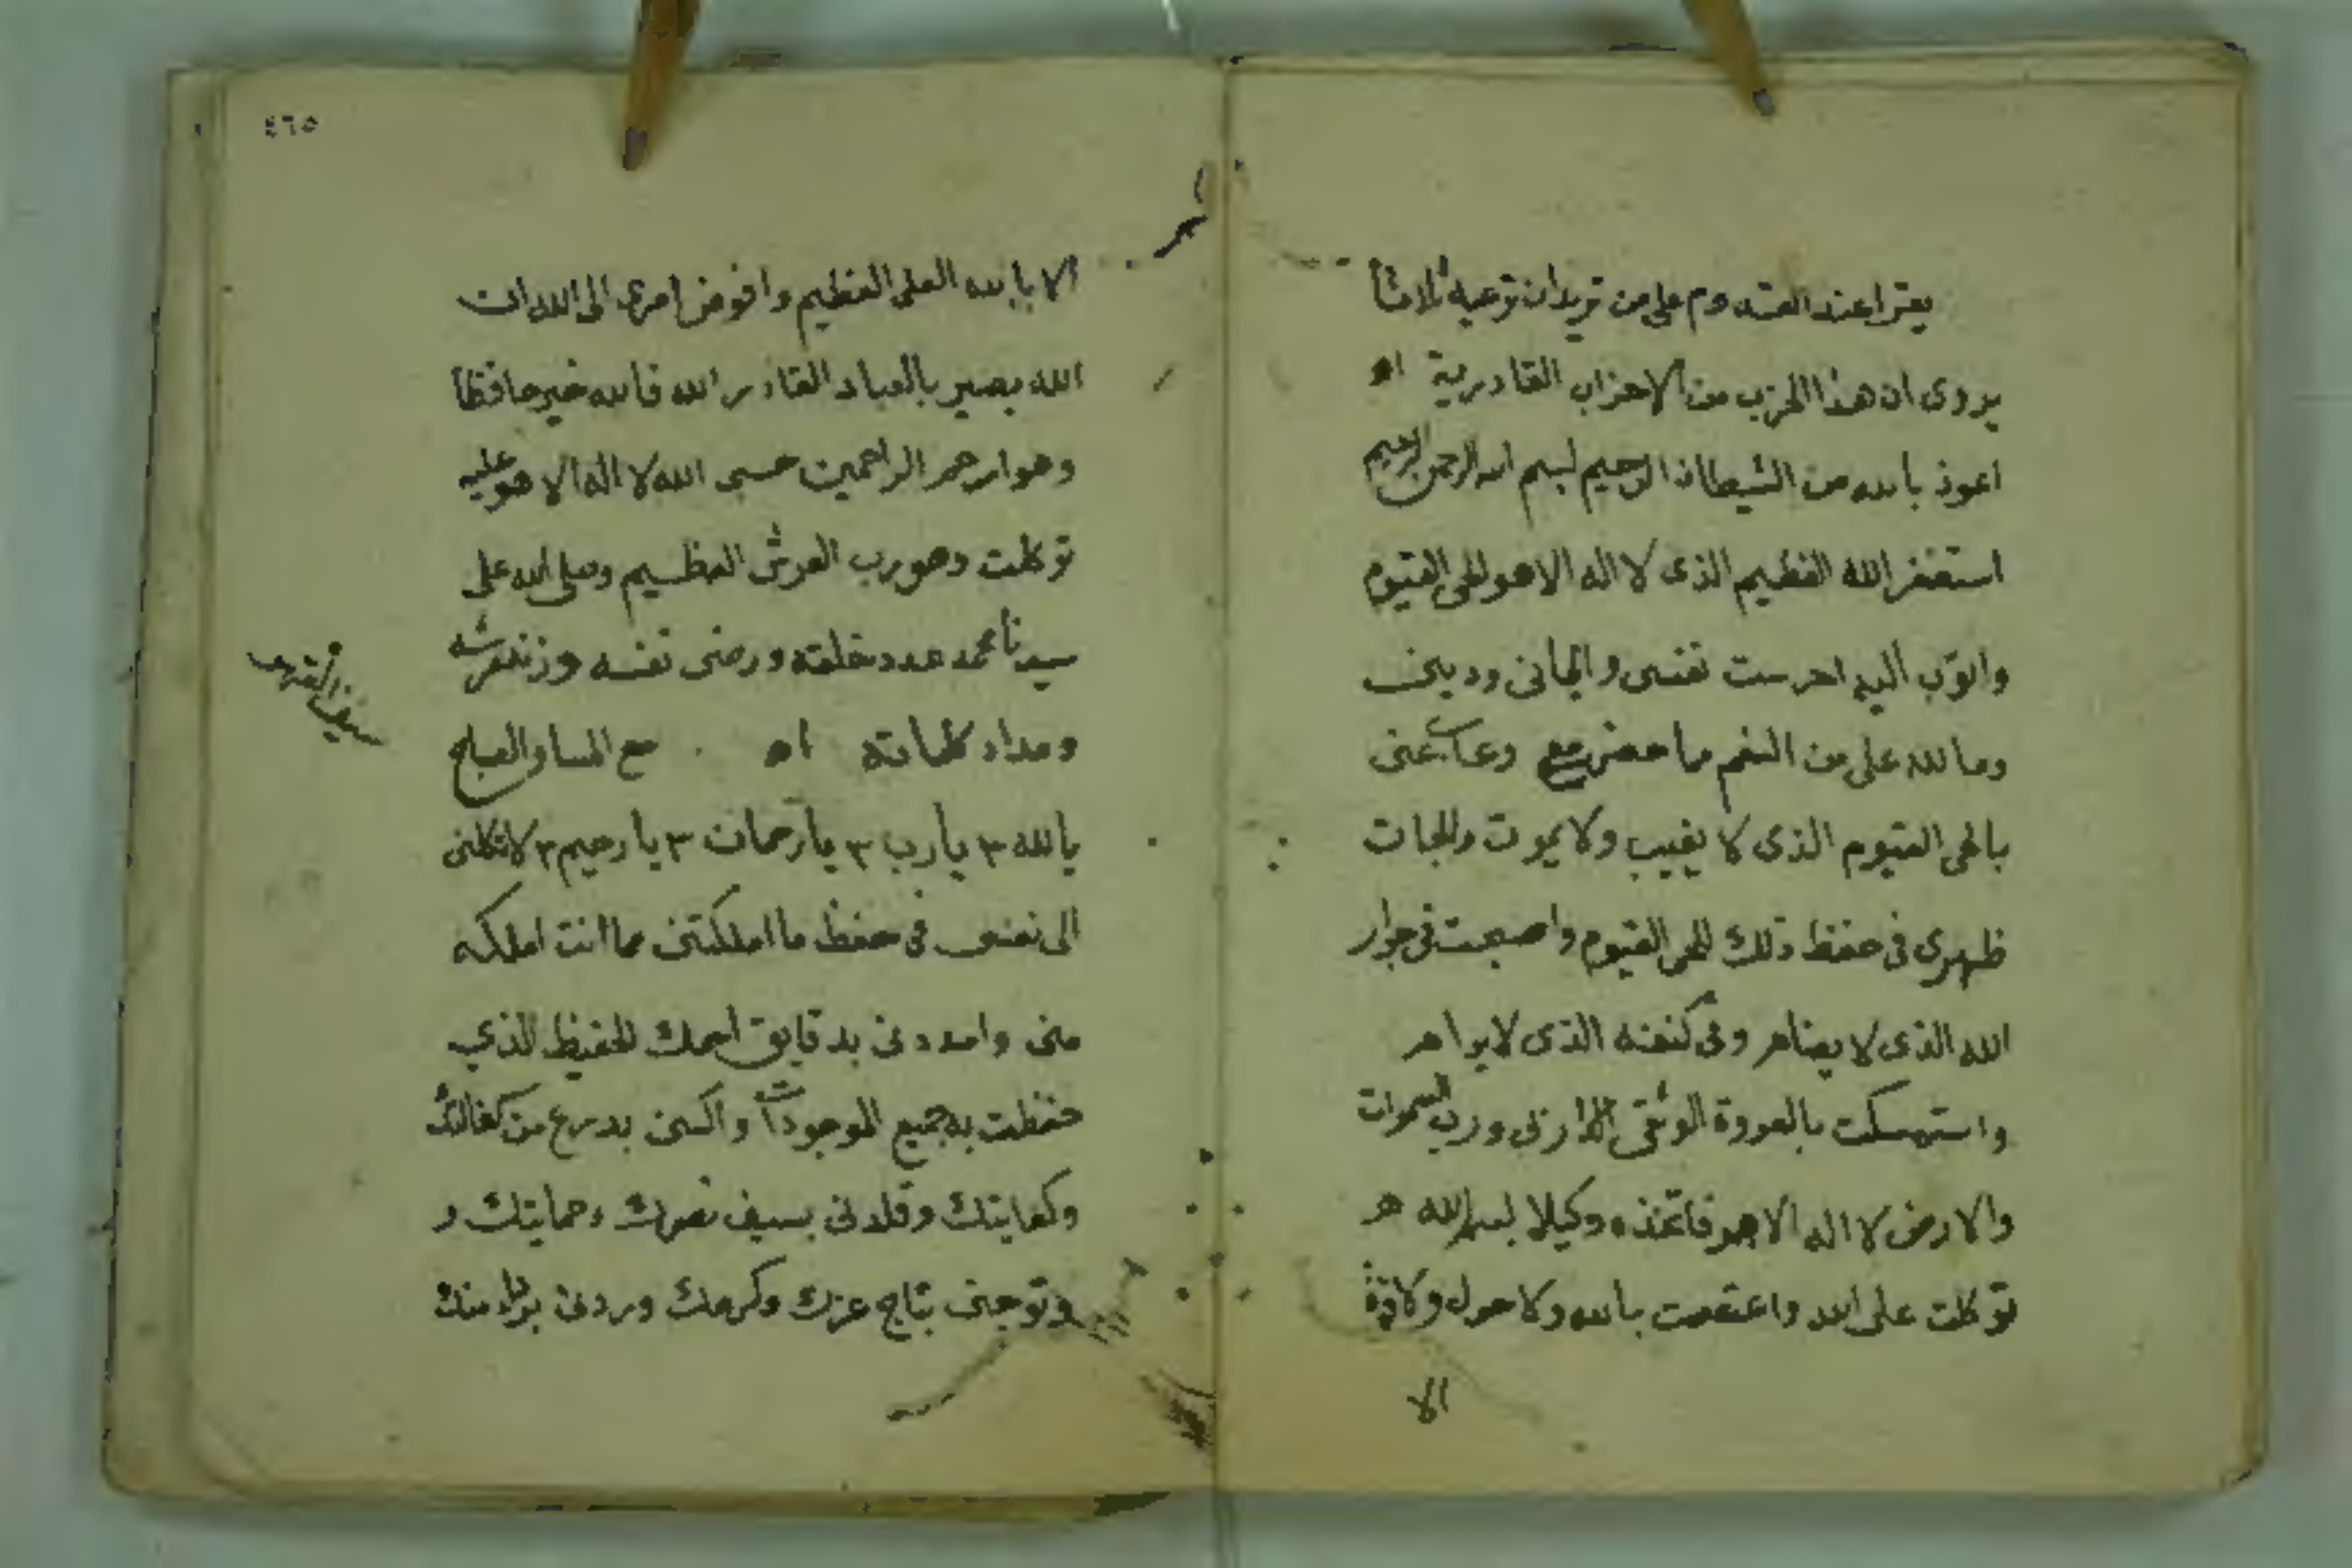 يقرا عند العتمه وم على من تريد ان توعيه ثلاثاً
يروى ان هذا الحزب من الاحزاب القادرية اه
اعوذ بالله من الشيطان الرجيم بسم الله الرحمن الرحيم
استغفر الله العظيم الذى لا اله الا هو الحى القيوم
واتوب اليه احرست نفسى وايمانى ودينى
وما لله على من النعم ما حضر مع وغاب عنى
بالحى القيوم الذى لا يغيب ولا يموت والجات
ظهرى فى حفظ ذلك للحى القيوم واصبحت فى جوار
الله الذى لا يضاهر وفى كنفه الذى لا يراهر
واستمسكت بالعروة الوثقى ورب السموات
والارض لا اله الا هو فاتخذه وكيلا بسم الله هـ
توكلت على الله واعتصمت بالله ولا حول ولا قوة
الا
٤٦٥
الا بالله العلى العظيم وافوض امرى الى الله ان
الله بصير بالعباد القادر الله فالله خير حافظا
وهو ارحم الراحمين حسبى الله لا اله الا هو عليه
توكلت وهو رب العرش العظيم وصلى الله على
سيدنا محمد عدد خلقه ورضى نفسه وزنة عرشه
ومداد كلماته اه مع المسا والصباح
يا الله ٣ يا رب ٣ يا رحمان ٣ يا رحيم ٣ لا تكلنى
الى نفسى فى حفظ ما املكتنى مما انت املكه
منى وامددنى بدقايق اسمك الحفيظ الذي
حفظت به جميع الموجودات واكسنى بدرع من كفالتك
وكفايتك وقلدنى بسيف نصرك وحمايتك و
وتوجنى بتاج عزك وكرمك وردنى برداء منك
سيف القهر